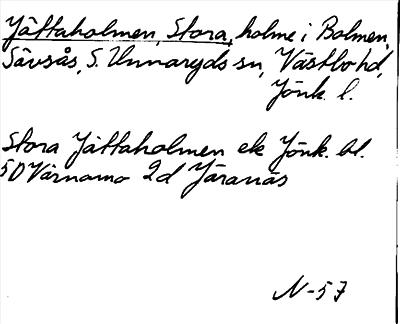 Jättaholmen, Stora, holme i Bolmen,
Sävsås, S. Unnaryds sn, Västbo hd,
Jönk. l.
Stora Jättaholmen ek Jönk. bl.
5D Värnamo 2d Järanäs
N-57